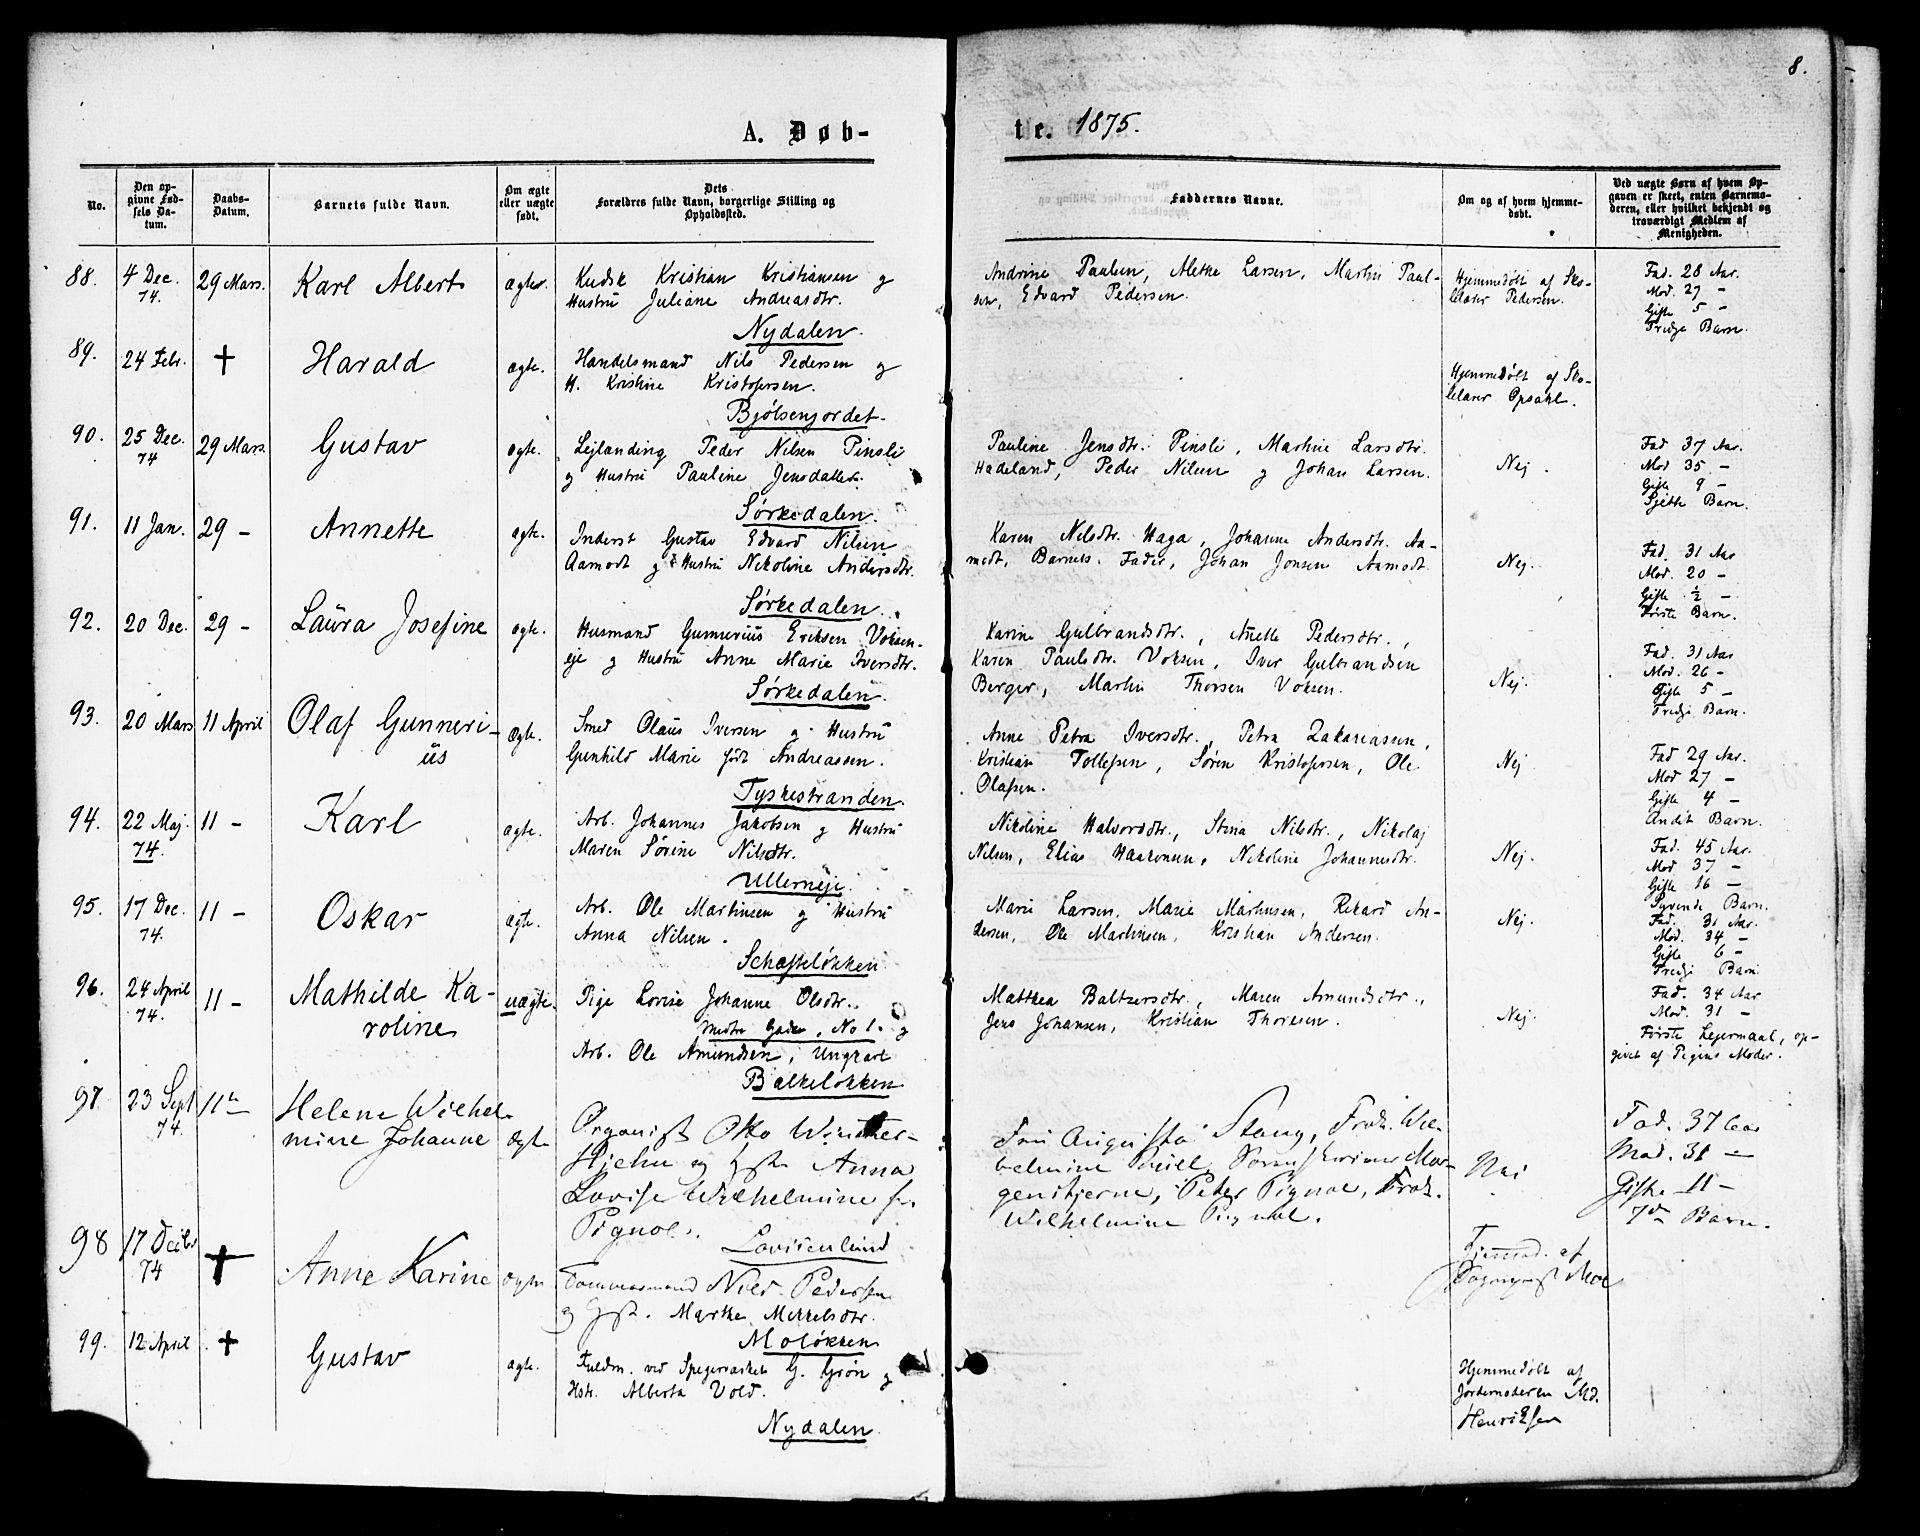 8.
A. Døb-
te. 1875.
No.
Den op-
givne Fød-
sels Da-
tum.
Daabs-
Datum.
Barnets fulde Navn.
Om ægte
eller uægte
født.
Dets
Forældres fulde Navn, borgerlige Stilling og
Opholdssted.
Faddernes Navne.
Om og af hvem hjemme-
døbt.
Ved uægte Børn af hvem Op-
gaven er skeet, enten Barnemo-
deren, eller hvilket bekjendt og
troværdigt Medlem af
Menigheden.
88.
4 Dec.
74.
29 Mars.
Karl Albert
ægte.
Kudsk Kristian Kristiansen og
Hustru Juliane Andreasdtr.
Nydalen.
Andrine Paulsen, Alethe Larsen, Martin Paul-
sen, Edvard Pedersen.
Hjemmedøbt af Sko-
lelærer Pedersen.
Fad. 28 Aar.
Mod. 27 –
Gifte 5 –
Tredje Barn.
89.
24 Febr.
†
Harald
ægte.
Handelsmand Nils Pedersen og
H. Kristine Kristofersen.
Bjølsenjordet.
Hjemmedøbt af Sko-
lelærer Opsahl.
90.
25 Dec.
74
29 Mars.
Gustav
ægte.
Lejlænding Peder Nilsen Pinsli
og Hustru Pauline Jensdatter.
Sørkedalen.
Pauline Jensdtr. Pinsli, Martine Larsdtr.
Hadeland, Peder Nilsen og Johan Larsen.
Nej.
Fad 37 Aar.
Mod 35. –
Gifte 9 –
Sjette Barn.
91.
11 Jan.
29 –
Annette
ægte.
Inderst Gustav Edvard Nilsen
Aamodt og Hustru Nikoline Andersdtr.
Sørkedalen.
Karen Nilsdtr. Haga, Johanne Andersdtr. Aa-
modt, Barnets Fader, Johan Jonsen Aamodt.
Nej.
Fad. 31 Aar
Mod. 20 –
Gifte ½ –
Første Barn.
92.
20 Dec.
29 –
Laura Josefine
ægte.
Husmand Gunnerius Eriksen Voksen-
eje og Hustru Anne Marie Iversdtr.
Sørkedalen.
Karine Gulbrandsdtr., Anette Pedersdtr.,
Karen Paulsdtr. Voksen, Iver Gulbrandsen
Berger, Martin Thorsen Voksen.
Nej.
Fad. 31 Aar
Mod. 26 –
Gifte 5 –
Tredje Barn.
93.
20 Mars
11 April
Olaf Gunneri-
us
ægte.
Smed Olaus Iversen og Hustru
Gunhild Marie født Andreassen.
Tyskestranden.
Anne Petra Iversdtr., Petra Zakariassen,
Kristian Tollefsen, Søren Kristofersen, Ole
Olafsen.
Nej
Fad 29 Aar.
Mod 27 –
Gifte 4 –
Andet Barn.
94.
22 Maj.
74.
11 –
Karl
ægte.
Arb. Johannes Jakobsen og Hustru
Maren Sørine Nilsdtr.
Ullerneje.
Nikoline Halvorsdtr., Stina Nilsdtr., Nikolaj
Nilsen, Elias Haakonsen, Nikoline Johannesdtr.
Nej.
Fad. 45 Aar.
Mod 37 –
Gifte 16 –
Syvende Barn.
95.
17 Dec.
74.
11 –
Oskar
ægte.
Arb. Ole Martinsen og Hustru
Anna Nilsen.
Schafteløkken
Marie Larsen, Marie Martinsen, Rikard An-
dersen, Ole Martinsen, Kristian Andersen.
Nej.
Fad. 31 Aar.
Mod. 34 –
Gifte 6 –
Tredje Barn
96.
24 April
74.
11 –
Mathilde Ka-
roline
uægte.
Pige Lovise Johanne Olsdtr.
Gaden, No 1. og
Arb. Ole Amundsen, Ungkarl
Balkeløkken
Matthea Baltzersdtr., Maren Amundsdtr.,
Jens Johansen, Kristian Thoresen.
Nej.
Fad. 34 Aar
Mod. 31 –
Første Lejermaal, op-
givet af Pigens Moder.
97
23 Sept
74.
11te
Helene Wilhel-
mine Johanne
Ægte
Organist Otto Winther-
Hjelm og Hst. Anna
Lovise Wilhelmine f.
Pignol.
Lovisenlund
Fru Augusta Stang, Frøk. Wil-
helmine Sorenskriver Mor-
genstjerne, Peter Pignol, Frøk.
Wilhelmine Pignol.
Nei
Fad. 37 Aar
Mod. 31 –
Gifte 11 –
7de Barn.
98
17 Decbr
74
†
Anne Karine
Ægte
Tømmermand Nils Pedersen
og Hst. Marthe Mikkelsdtr.
Moløkken
Hjemmed. af
Sogneprest Moe
99.
12 April
†
Gustav
ægte.
Fuldm. ved Spigerværket G. Grøn og
Hstr. Alberta Vold.
Nydalen.
Hjemmedøbt af
Jordemoderen Md.
Henriksen